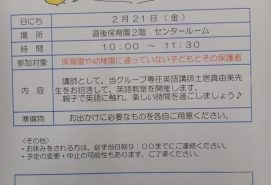 日にち 2月21日(金)
場所 道後保育園2階 センタールーム
時間 10:00 ～ 11:30
参加対象 保育園や幼稚園に通っていない子どもとその保護者
内容 講師として、当グループ専任英語講師土居真由美先
生をお招きして、英語教室を開催します。
親子で英語に触れ、楽しい時間を過ごしましょう♪
準備物 お出かけに必要なものを各自ご用意ください。
<その他>
・お休みをされる方は、必ず当日朝9:00までにご連絡ください。
・予定の変更・中止の可能性もあります。ご了承ください。